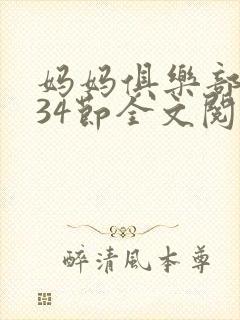 妈妈俱樂部
34節全文閱
醉清風本尊